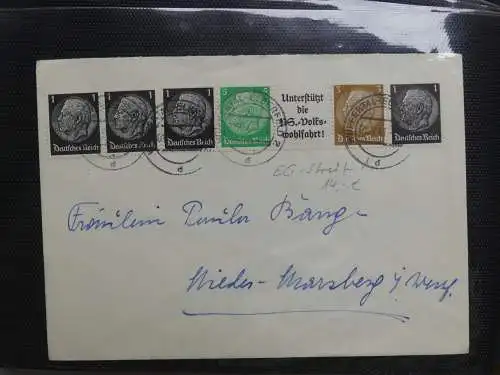 1 1 1 5 3 1
Unterstützt
die
NS.-Volks-
wohlfahrt!
Deutsches Reich Deutsches Reich Deutsches Reich Deutsches Reich Deutsches Reich Deutsches Reich
d d d d
14,- €
Fräulein Paula Bange
Nieder-Marsberg i/ Westf.